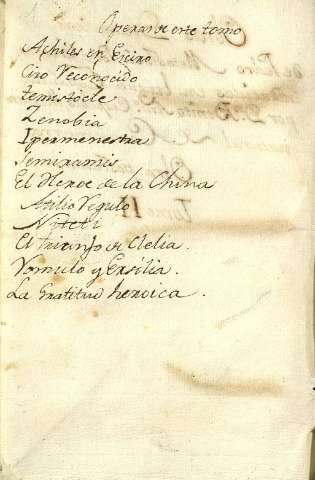 Operas de este tomo
Achiles en Sciro
Ciro Reconocido
temistocle
Zenobia
Ipermenestra
Semiramis
El Heroe de la China
Atilio Regulo
Niteti
El triunfo de Clelia.
Romulo y Ersilia.
La Gratitud heroica.